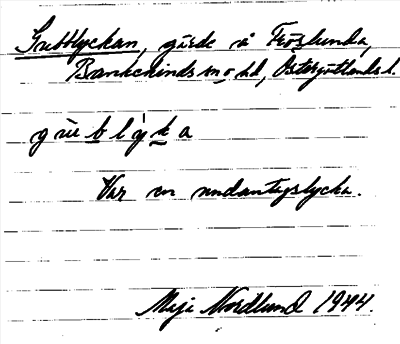 Gubblyckan, gärde å Fröslunda,
Bankekinds sn o hd, Östergötlands l.
gu̇b lẏk a
Var en undantagslycka.
Maja Nordlund 1944.